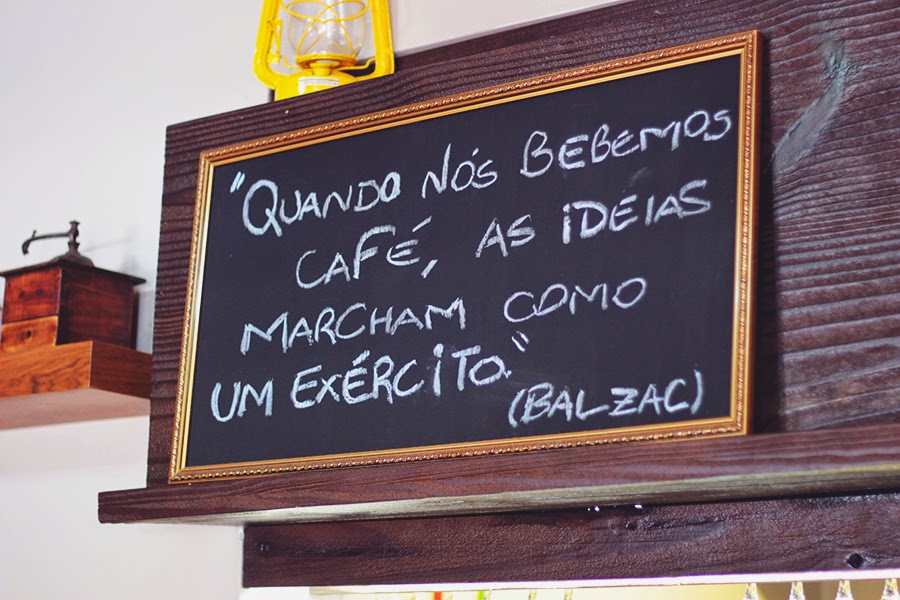 "QUANDO NÓS BEBEMOS
CAFÉ, AS iDEIAS
MARCHAM COMO
UM EXÉRCiTO."
(BALZAC)